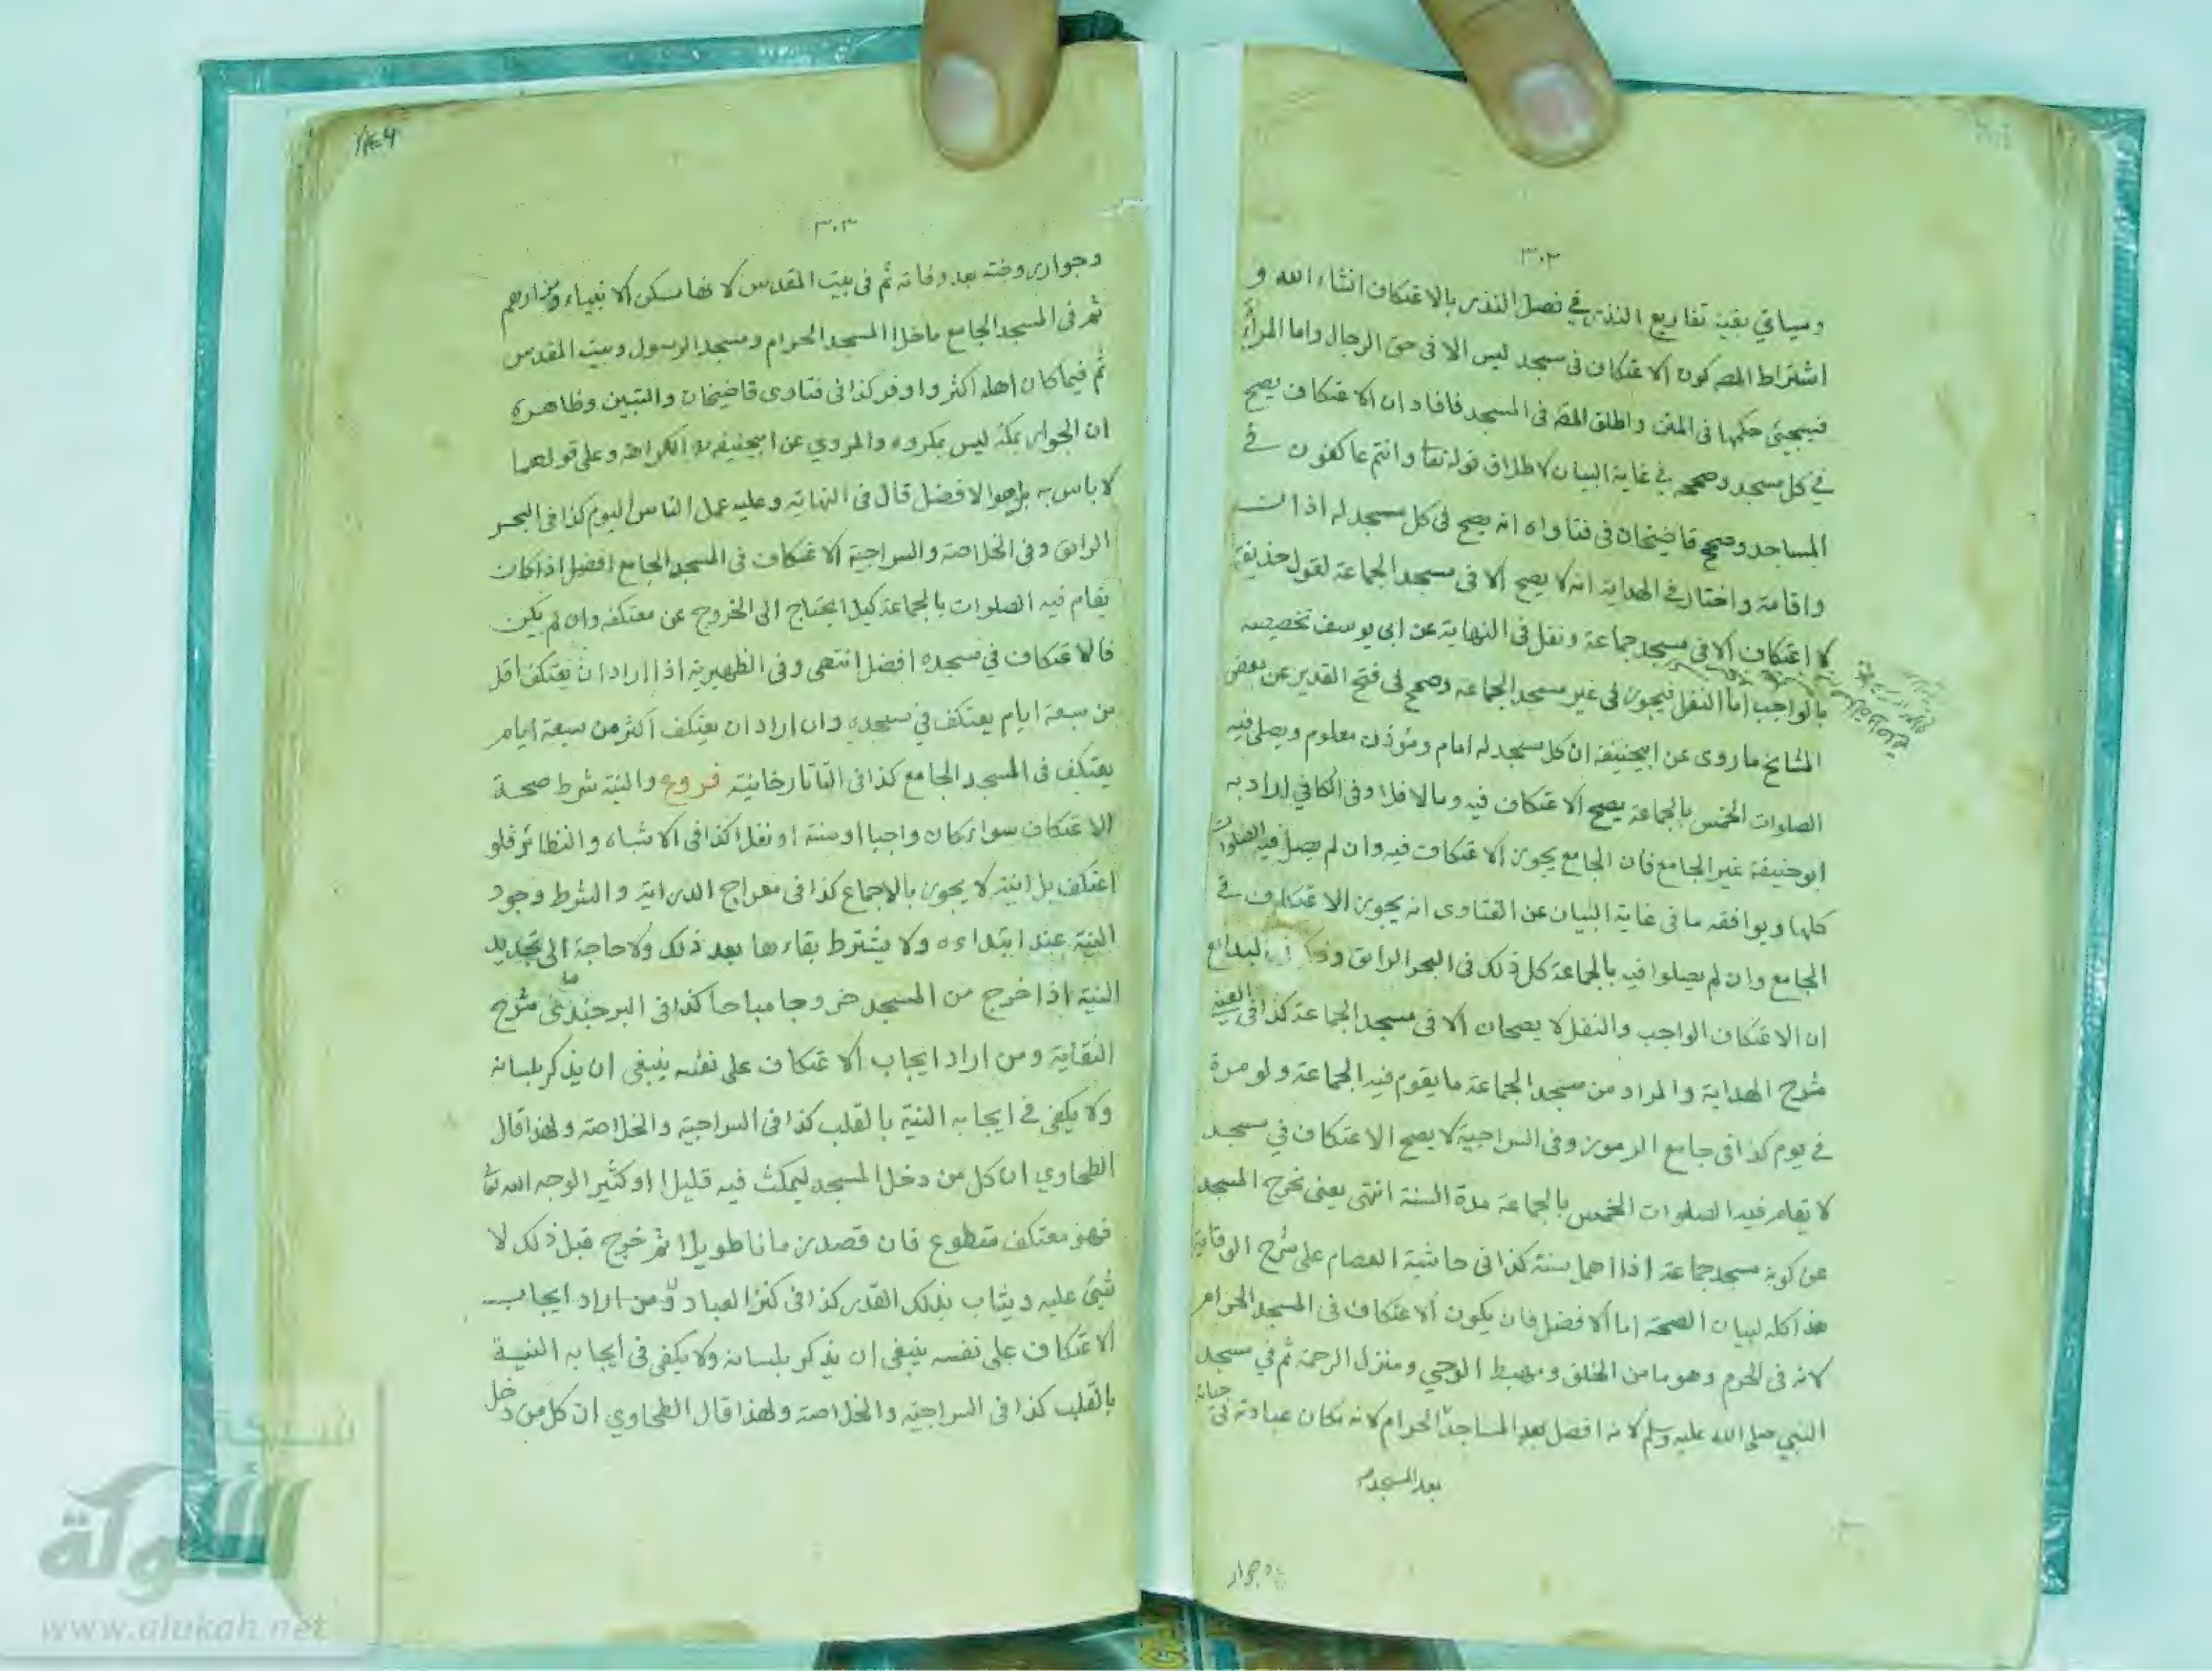 ٣٠٢
وسياتي بقية تفاريع النذر في فصل النذر بالاعتكاف انشاء الله و
اشتراط المصه كون الاعتكاف في مسجد ليس الا في حق الرجال واما المرأة
فسيجئ حكمها في المتن واطلق المصه في المسجد فافاد ان الاعتكاف يصح
في كل مسجد وصححه في غاية البيان لاطلاق قوله تعا وانتم عاكفون في
المساجد وصحح قاضيخان في فتاواه انه يصح في كل مسجد له اذان
واقامة واختار في الهداية انه لا يصح الا في مسجد الجماعة لقول حذيفة
لا اعتكاف الا في مسجد جماعة ونقل في النهاية عن ابي يوسف تخصيصه
بالواجب اما النفل فيجوز في غير مسجد الجماعة وصحح في فتح القدير عن بعض
المشايخ ما روى عن ابيحنيفة ان كل مسجد له امام ومؤذن معلوم ويصلى فيه
الصلوات الخمس بالجماعة يصح الاعتكاف فيه ومالا فلا وفي الكافي اراد به
ابو حنيفة غير الجامع فان الجامع يجوز الاعتكاف فيه وان لم يصل فيه الصلوات
كلها ويوافقه ما في غاية البيان عن الفتاوى انه يجوز الاعتكاف في
الجامع وان لم يصلوا فيه بالجماعة كل ذلك في البحر الرائق وذكر في البدائع
ان الاعتكاف الواجب والنفل لا يصحان الا في مسجد الجماعة كذا في
شرح الهداية والمراد من مسجد الجماعة ما يقوم فيه الجماعة ولو مرة
في يوم كذا في جامع الرموز وفي السراجية لا يصح الاعتكاف في مسجد
لا تقام فيه الصلوات الخمس بالجماعة مدة السنة انتهى يعنى تخرج المسجد
عن كونه مسجد جماعة اذا اهمل سنة كذا في حاشية العصام على شرح الوقاية
هذا كله لبيان الصحة اما الافضل فان يكون الاعتكاف في المسجد الحرام
لانه في الحرم وهو مامن الخلق ومهبط الوحي ومنزل الرحمة ثم في مسجد
النبي صلى الله عليه وسلم لانه افضل بعد المساجد الحرام لانه مكان عبادته في حياته
بعد المسجد
وجوار
٣٠٣
وجوار روضته بعد وفاته ثم في بيت المقدس لانها مسكن الانبياء ومزارهم
ثم في المسجد الجامع ما خلا المسجد الحرام ومسجد الرسول وبيت المقدس
ثم فيما كان اهله اكثر واوفر كذا في فتاوى قاضيخان والتبين وظاهره
ان الجوار بمكة ليس بمكروه والمروي عن ابيحنيفة الكراهة وعلى قولهما
لا باس به بل هو الافضل قال في النهاية وعليه عمل الناس اليوم كذا في البحر
الرائق وفي الخلاصة والسراجية الاعتكاف في المسجد الجامع افضل اذا كان
يقام فيه الصلوات بالجماعة كيلا يحتاج الى الخروج عن معتكفه وان لم يكن
فالاعتكاف في مسجده افضل انتهى وفي الظهيرية اذا اراد ان يعتكف اقل
من سبعة ايام يعتكف في مسجده وان اراد ان يعتكف اكثر من سبعة ايام
يعتكف في المسجد الجامع كذا في التاتارخانية فروع والنية شرط صحة
الاعتكاف سواء كان واجبا او سنة او نفلا كذا في الاشباه والنظائر فلو
اعتكف بلا نية لا يجوز بالاجماع كذا في معراج الدراية والشرط وجود
النية عند ابتداءه ولا يشترط بقاءها بعد ذلك ولا حاجة الى تجديد
النية اذا خرج من المسجد خروجا مباحا كذا في البرجندى شرح
النقاية ومن اراد ايجاب الاعتكاف على نفسه ينبغى ان يذكر بلسانه
ولا يكفى في ايجابه النية بالقلب كذا في السراجية والخلاصة ولهذا قال
الطحاوي ان كل من دخل المسجد ليمكث فيه قليلا او كثير الوجه الله تعا
فهو معتكف متطوع فان قصد زمانا طويلا ثم خرج قبل ذلك لا
شئ عليه ويثاب بذلك القدر كذا في كنز العباد ومن اراد ايجاب
الاعتكاف على نفسه ينبغى ان يذكر بلسانه ولا يكفى في ايجابه النية
بالقلب كذا في السراجية والخلاصة ولهذا قال الطحاوي ان كل من دخل
شبكة
الألوكة
www.alukah.net